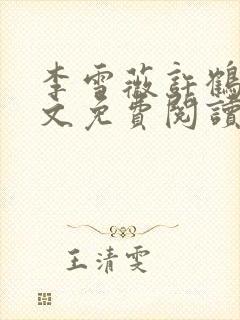 李雪薇許鶴
文免費閱讀
王清雯